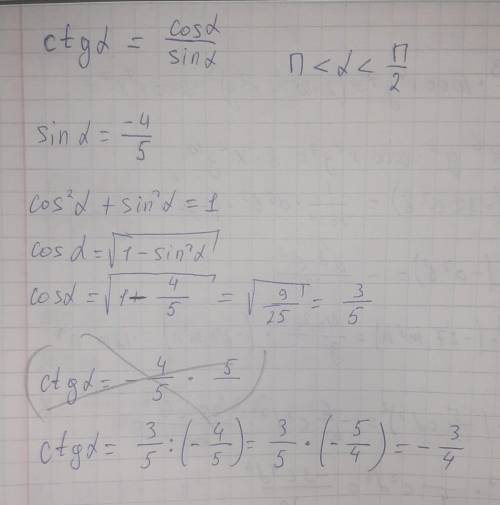 ctgα = cosα/sinα
П < α < П/2
sinα = -4/5
cos²α + sin²α = 1
cosα = √(1 - sin²α)
cosα = √(1 - 4/5) = √(9/25) = 3/5
ctgα = - 4/5 · 5
ctgα = 3/5 : (-4/5) = 3/5 · (-5/4) = -3/4